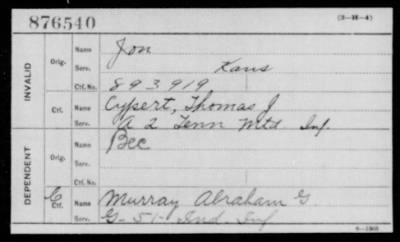 876540
(3-H-4)
INVALID
Orig.
Name Jon
Serv. Kans
Ctf. No. 893919
Ctf.
Name Cypert, Thomas J
Serv. A 2 Tenn Mtd. Inf.
DEPENDENT
Orig.
Name Bec
Serv.
Ctf. No.
C
Ctf.
Name Murray Abraham G
Serv. G-51-Ind. Inf